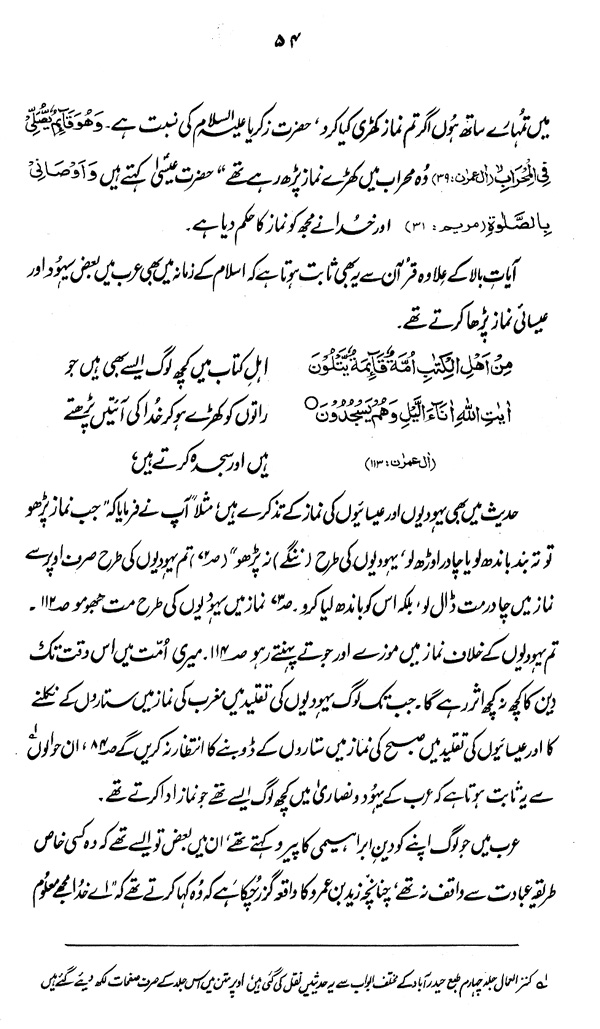 ۵۴
میں تمہارے ساتھ ہوں اگر تم نماز کھڑی کیا کرو، حضرت زکریا علیہ السلام کی نسبت ہے۔ وَھُوَ قَآئِمٌ یُّصَلِّیْ
فِی الْمِحْرَابِ (اٰل عمران: ۳۹) وُہ محراب میں کھڑے نماز پڑھ رہے تھے“ حضرت عیسیٰؑ کہتے ہیں وَاَوْصَانِیْ
بِالصَّلٰوۃِ (مریم: ۳۱) اور خدا نے مجھ کو نماز کا حکم دیا ہے۔
آیات بالا کے علاوہ قرآن سے یہ بھی ثابت ہوتا ہے کہ اسلام کے زمانہ میں بھی عرب میں بعض یہود اور
عیسائی نماز پڑھا کرتے تھے۔
مِنْ اَھْلِ الْکِتٰبِ اُمَّۃٌ قَآئِمَۃٌ یَّتْلُوْنَ اہلِ کتاب میں کچھ لوگ ایسے بھی ہیں جو
اٰیٰتِ اللّٰہِ اٰنَآءَ الَّیْلِ وَھُمْ یَسْجُدُوْنَ○ راتوں کو کھڑے ہو کر خُدا کی آیتیں پڑھتے
(اٰل عمران: ۱۱۳) ہیں اور سجدہ کرتے ہیں؛
حدیث میں بھی یہودیوں اور عیسائیوں کی نماز کے تذکرے ہیں مثلاً آپ نے فرمایا کہ ”جب نماز پڑھو
تو تہ بند باندھ لو یا چادر اوڑھ لو، یہودیوں کی طرح (ننگے) نہ پڑھو“ (صـ۷۲) تم یہودیوں کی طرح صرف اوپر سے
نماز میں چادر مت ڈال لو، بلکہ اس کو باندھ لیا کرو۔ صـ۷۳ نماز میں یہودیوں کی طرح مت جھومو صـ۱۱۲۔
تم یہودیوں کے خلاف نماز میں موزے اور جوتے پہنتے رہو صـ۱۱۴۔ میری امّت میں اس وقت تک
دین کا کچھ نہ کچھ اثر رہے گا۔ جب تک لوگ یہودیوں کی تقلید میں مغرب کی نماز میں ستاروں کے نکلنے
کا اور عیسائیوں کی تقلید میں صبح کی نماز میں ستاروں کے ڈوبنے کا انتظار نہ کریں گے صـ۸۴، ان حوالوں لہ
سے یہ ثابت ہوتا ہے کہ عرب کے یہود و نصاریٰ میں کچھ لوگ ایسے تھے جو نماز ادا کرتے تھے۔
عرب میں جو لوگ اپنے کو دینِ ابراہیمی کا پیرو کہتے تھے، ان میں بعض تو ایسے تھے کہ وہ کسی خاص
طریقہ عبادت سے واقف نہ تھے، چنانچہ زید بن عمرو کا واقعہ گزر چُکا ہے کہ وُہ کہا کرتے تھے کہ ”اے خدا مجھے معلوم
لہ کنز العمال جلد چہارم طبع حیدر آباد کے مختلف ابواب سے یہ حدیثیں نقل کی گئی ہیں، اوپر متن میں اس جلد کے صرف صفحات لکھ دیئے گئے ہیں